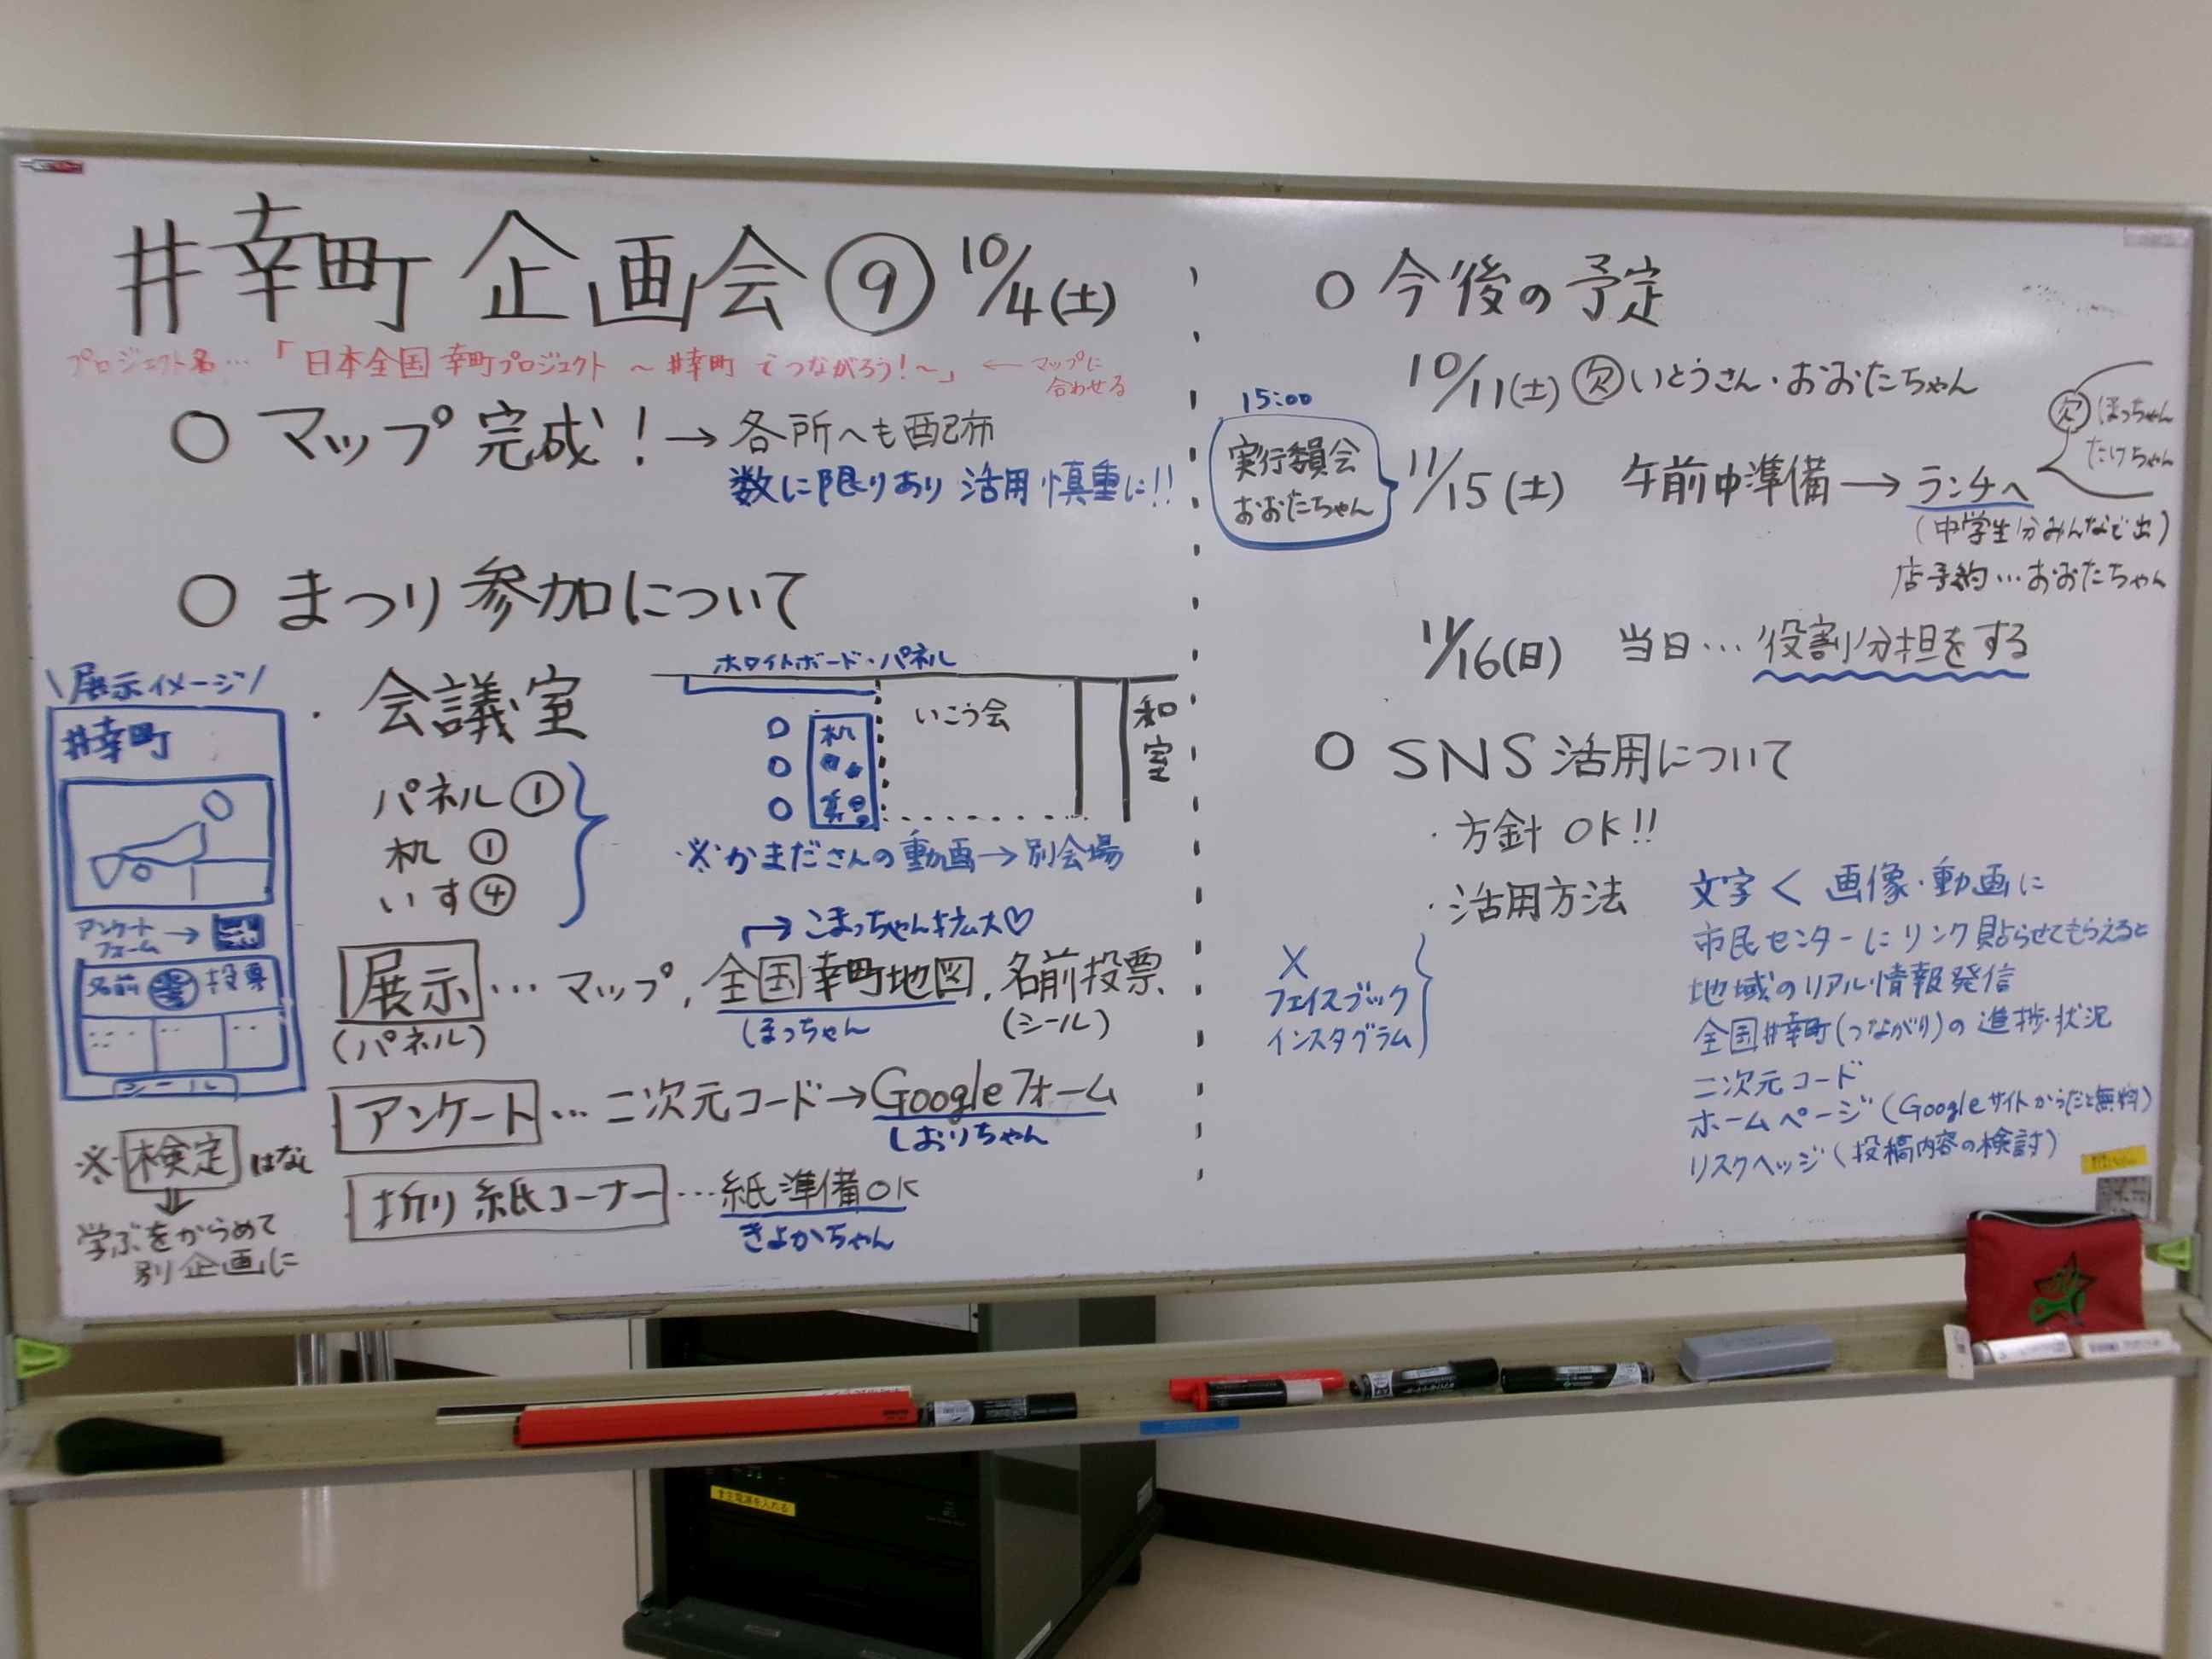 #幸町 企画会⑨ 10/4(土)
プロジェクト名…「日本全国 幸町プロジェクト ～#幸町 でつながろう!～」 ← マップに合わせる
○ マップ 完成! → 各所へも配布
数に限りあり 活用 慎重に!!
○ まつり参加について
\展示イメージ/
#幸町
アンケート
フォーム →
名前 投票
シール
※ 検定 はなし
⇓
学ぶをからめて
別企画に
・会議室
パネル①
机 ①
いす④
ホワイトボード・パネル
机
いこう会
和室
※かまださんの動画→別会場
→ こまっちゃん拡大♡
展示 … マップ, 全国幸町地図, 名前投票
(パネル) ほっちゃん (シール)
アンケート … 二次元コード→Googleフォーム
しおりちゃん
折り紙コーナー … 紙準備OK
きよかちゃん
○ 今後の予定
10/11(土) 欠 いとうさん・おおたちゃん
15:00
実行委員会
おおたちゃん
11/15(土) 午前中準備 → ランチへ
欠 ほっちゃん
たけちゃん
(中学生分みんなで出)
店予約…おおたちゃん
11/16(日) 当日… 役割分担をする
○ SNS 活用について
・方針 OK!!
・活用方法
X
フェイスブック
インスタグラム
文字 < 画像・動画に
市民センターにリンク貼らせてもらえると
地域のリアル情報発信
全国#幸町(つながり)の進捗・状況
二次元コード
ホームページ(Googleサイトからだと無料)
リスクヘッジ(投稿内容の検討)